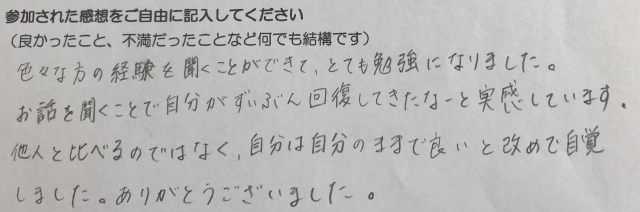 参加された感想をご自由に記入してください
（良かったこと、不満だったことなど何でも結構です）
色々な方の経験を聞くことができて、とても勉強になりました。
お話を聞くことで自分がずいぶん回復してきたなーと実感しています。
他人と比べるのではなく、自分は自分のままで良いと改めて自覚
しました。ありがとうございました。